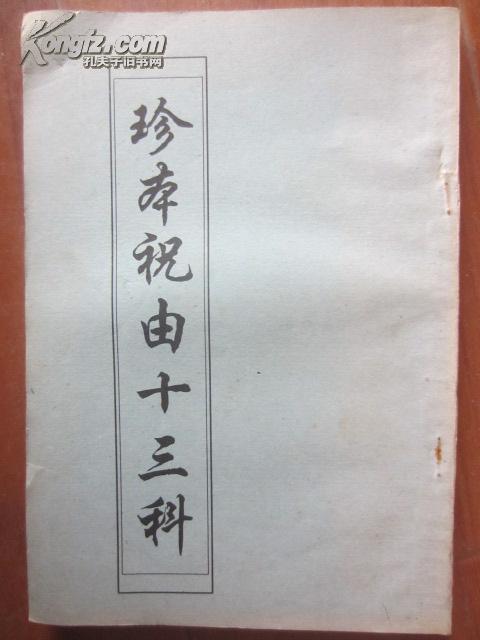 Kongfz.com
孔夫子旧书网
珍本祝由十三科